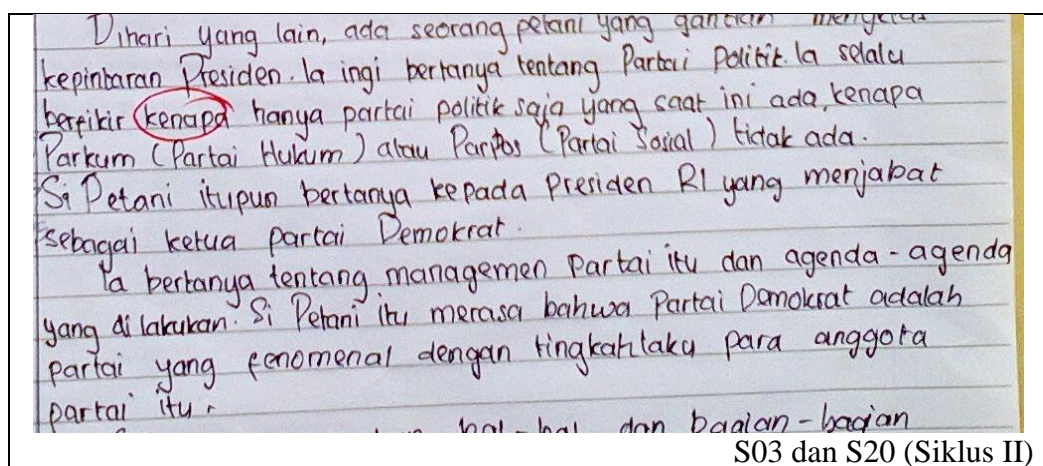 Dihari yang lain, ada seorang petani yang gantian mengetes
kepintaran Presiden. Ia ingi bertanya tentang Partai Politik. Ia selalu
berfikir kenapa hanya partai politik saja yang saat ini ada, kenapa
Parkum (Partai Hukum) atau Parsos (Partai Sosial) tidak ada.
Si Petani itupun bertanya kepada Presiden RI yang menjabat
sebagai ketua partai Demokrat.
Ia bertanya tentang managemen Partai itu dan agenda-agenda
yang di lakukan. Si Petani itu merasa bahwa Partai Demokrat adalah
partai yang fenomenal dengan tingkahlaku para anggota
partai itu.
hal-hal dan bagian-bagian
S03 dan S20 (Siklus II)